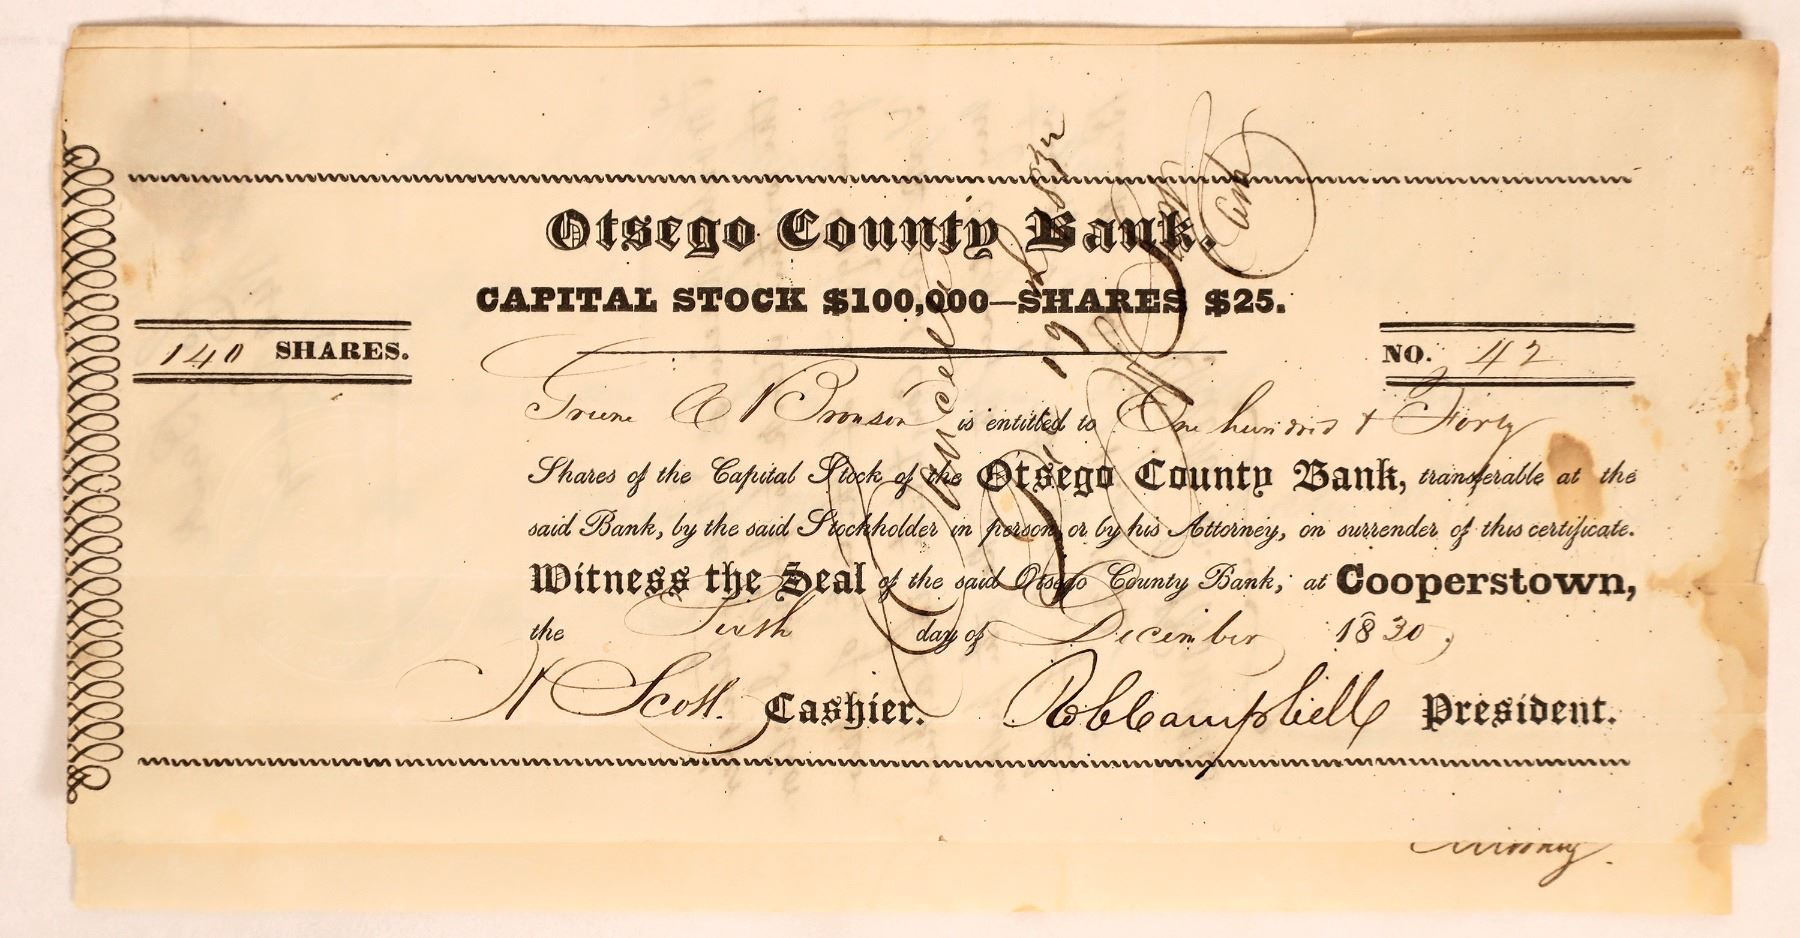 Otsego County Bank.
CAPITAL STOCK $100,000—SHARES $25.
140 SHARES.
NO. 42
Bronson is entitled to One hundred & Forty
Shares of the Capital Stock of the Otsego County Bank, transferable at the
said Bank, by the said Stockholder in person, or by his Attorney, on surrender of this certificate.
Witness the Seal of the said Otsego County Bank, at Cooperstown,
the Sixth day of December 1830,
H Scott. Cashier. Rob Campbell President.
Cancelled
19
Cash
Attorney.